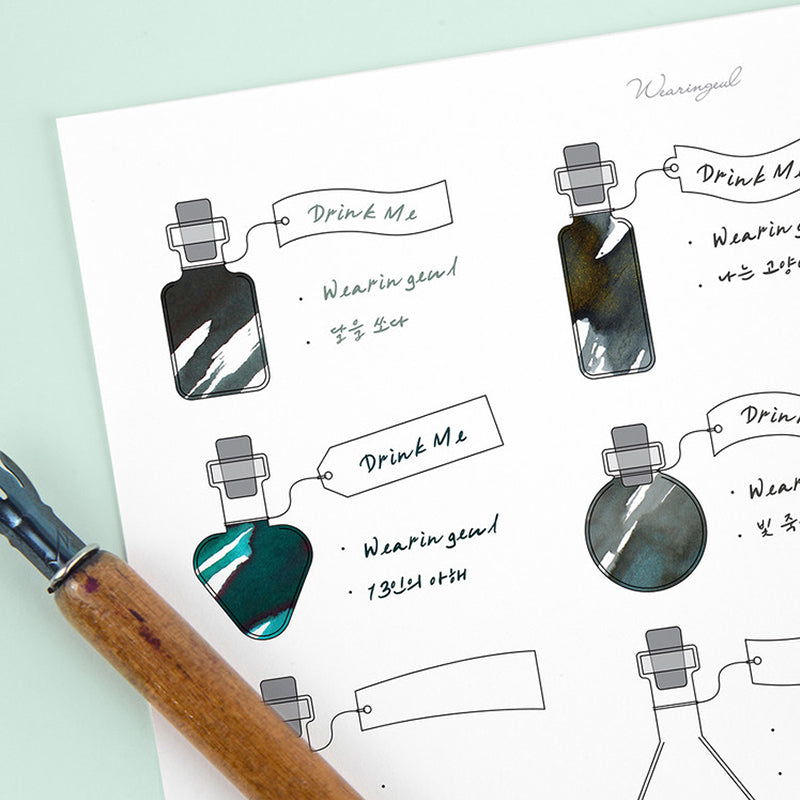 Wearingeul
Drink Me
Wearingeul
달을 쏘다
Drink Me
나는
Drink Me
Wearingeul
13인의 아해
빛